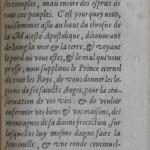 ses temples, mais encore des esprits de
tous ces peuples. C'est pourquoy nous,
qui sommes assis au haut du throsne de
la Majesté Apostolique, découurant
de loing la mer & la terre, & voyant
le perd ou vous estes, & le mal qui vous
presse, nous supplions le Prince eternel
de tous les Roys, de vous donner les le-
gions de ses saincts Anges, pour la con-
seruation de vos vies: & de vouloir
enfermer vos biens & vos maisons, des
murs de sa diuine protection, sur
lesquelles luy mesme daigne faire la
sentinelle, & vne ronde continuel-